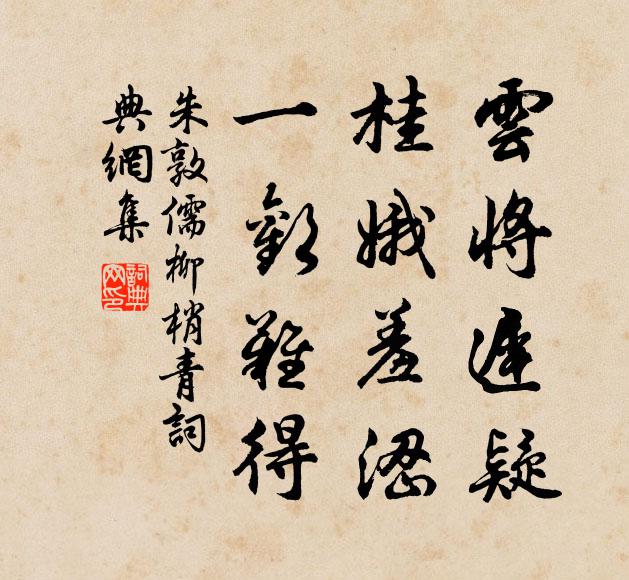 雲將遲疑
桂娥羞澀
一歡難得
朱敦儒柳梢青詞
典網集
詞典
网印